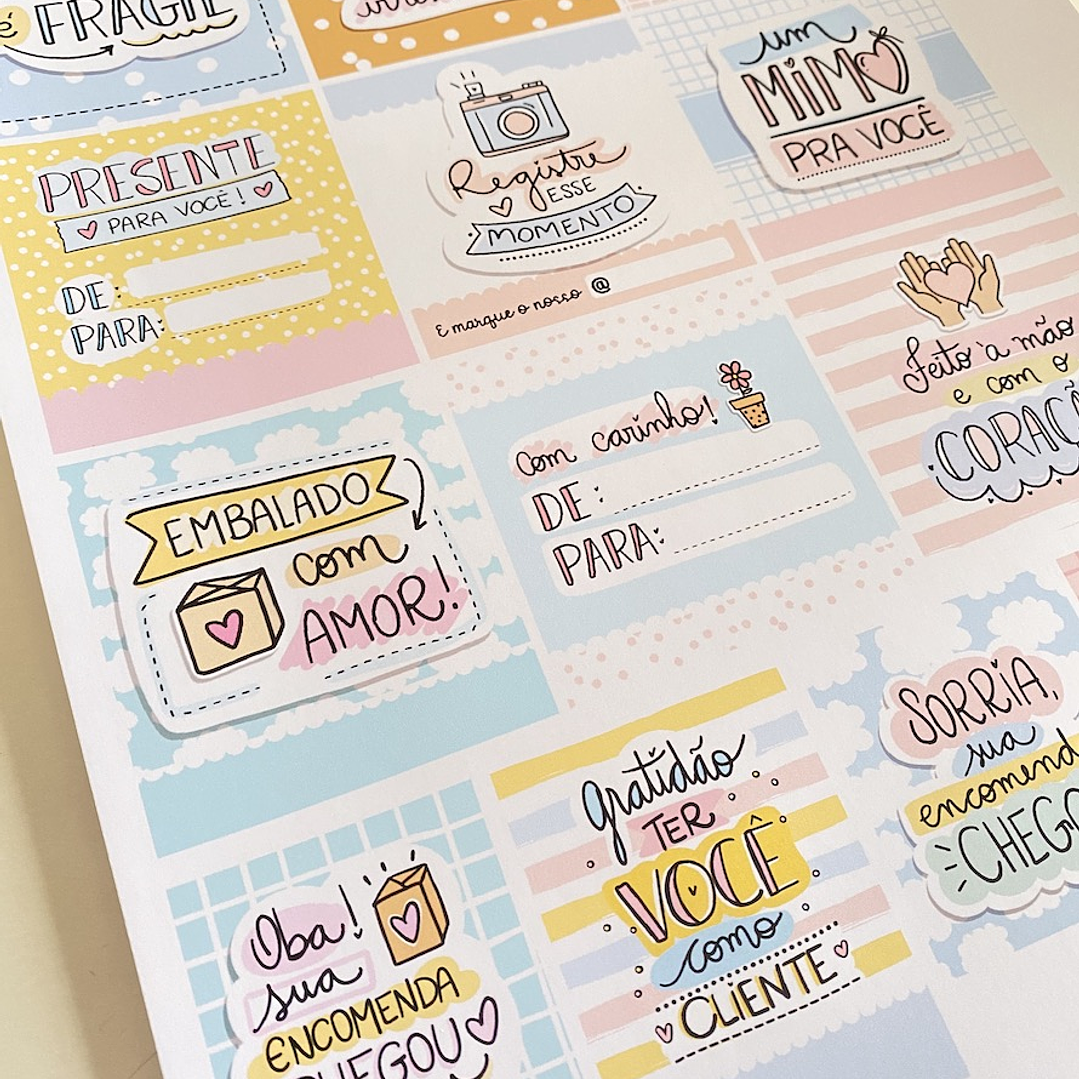 é FRÁGIL
PRESENTE
PARA VOCÊ!
DE:
PARA:
Registre
ESSE
MOMENTO
E marque o nosso @
um
MiMO
PRA VOCÊ
Feito à mão
e com o
CORAÇÃ
EMBALADO
com
AMOR!
com carinho!
DE:
PARA:
SORRiA,
sua
encomend
CHEGO
Oba!
sua
ENCOMENDA
CHEGOU
gratidão
TER
VOCÊ
como
CLiENTE